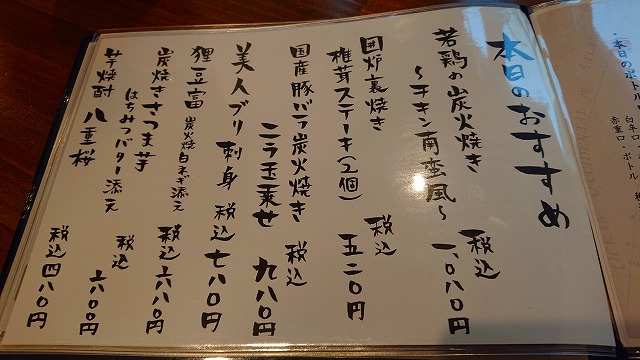 本日のおすすめ
若鶏の炭火焼き
〜チキン南蛮風〜
税込
一、〇八〇円
囲炉裏焼き
椎茸ステーキ(2個)
税込
五二〇円
国産豚バラ炭火焼き
ニラ玉乗せ
税込
九八〇円
美人ブリ刺身
税込
七八〇円
狸豆富
炭火焼白ネギ添え
税込
六八〇円
炭焼きさつま芋
はちみつバター添え
税込
六〇〇円
芋焼酎 八重桜
税込
四八〇円
・本日のボトル
赤重口・ボトル